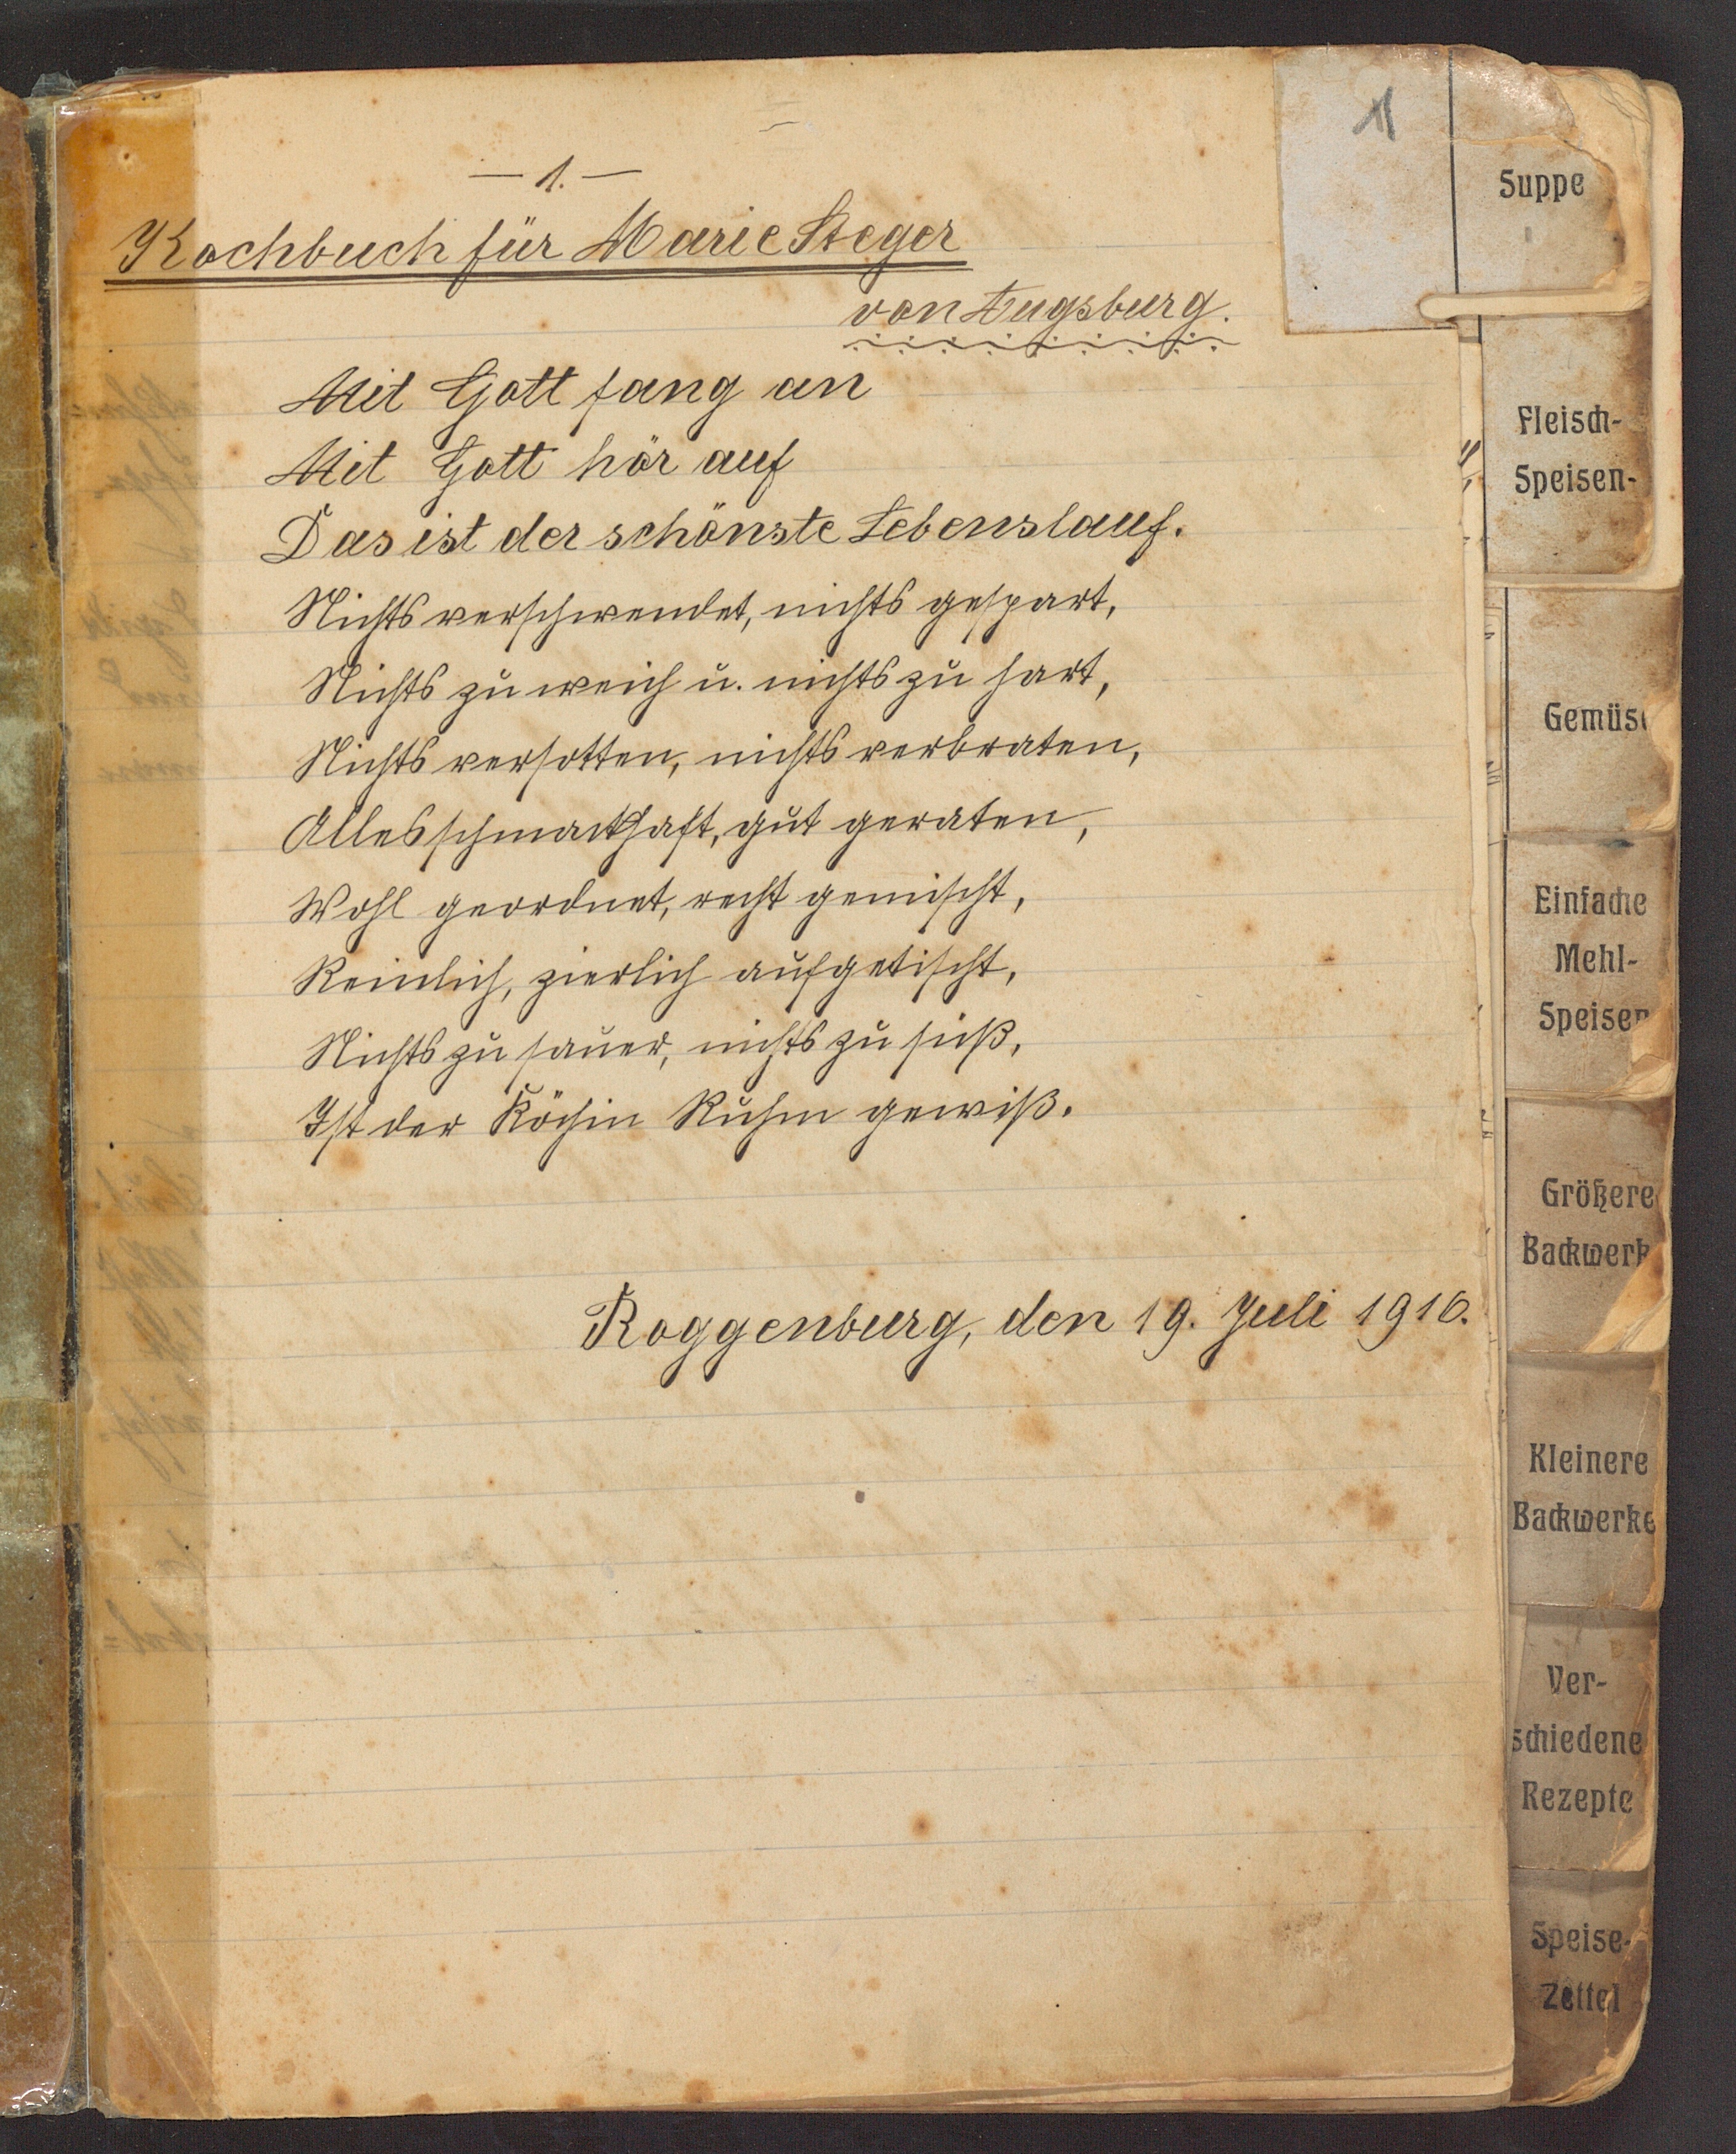 — 1. —
Kochbuch für Marie Steger
von Augsburg.
Mit Gott fang an
Mit Gott hör auf
Das ist der schönste Lebenslauf.
Nichts verschwendet, nichts gespart,
Nichts zu weich u. nichts zu hart,
Nichts versotten, nichts verbraten,
Alles schmackhaft, gut geraten,
Wohl geordnet, recht gemischt,
Reinlich, zierlich aufgetischt,
Nichts zu sauer, nichts zu süß,
Ist der Köchin Ruhm gewiß.
Roggenburg, den 19. Juli 1916.
Suppe
Fleisch-
Speisen-
Gemüse
Einfache
Mehl-
Speisen
Größere
Backwerk
Kleinere
Backwerke
Ver-
schiedene
Rezepte
Speise-
Zettel